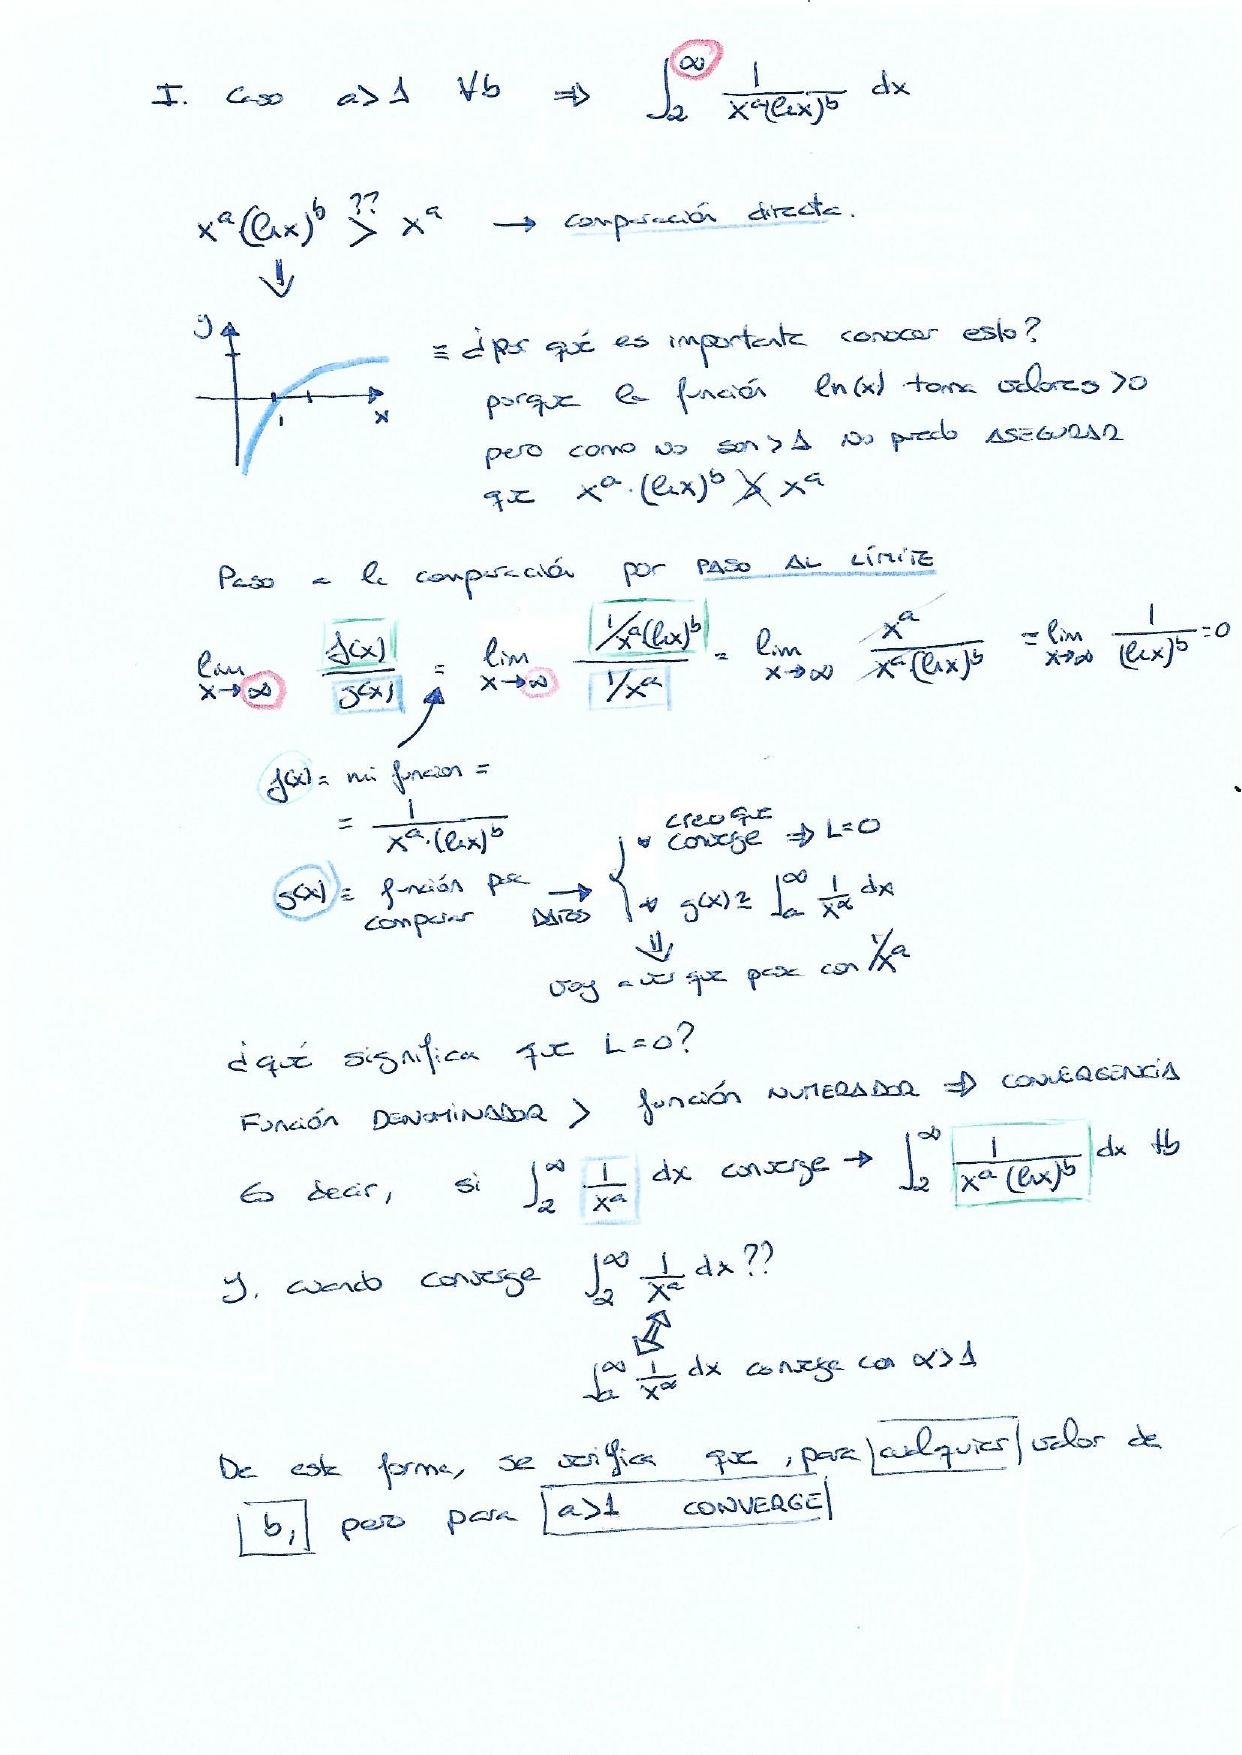 I. Caso a>1 ∀b ⇒ ∫₂^∞ 1/(xᵃ(lnx)ᵇ) dx
xᵃ(lnx)ᵇ >?? xᵃ → comparación directa.
y
x
1
≡ ¿por qué es importante conocer esto?
porque la función ln(x) toma valores >0
pero como no son >1 no puedo ASEGURAR
que xᵃ·(lnx)ᵇ ≯ xᵃ
Paso a la comparación por PASO AL LÍMITE
lim x→∞ f(x)/g(x) = lim x→∞ (1/xᵃ(lnx)ᵇ)/(1/xᵃ) = lim x→∞ xᵃ/(xᵃ(lnx)ᵇ) = lim x→∞ 1/(lnx)ᵇ =0
f(x) = mi funcion =
= 1/(xᵃ·(lnx)ᵇ)
g(x) = función para comparar → DATOS
creo que converge ⇒ L=0
g(x) ≡ ∫ₐ^∞ 1/x^α dx
voy a ver que pasa con 1/xᵃ
¿qué significa que L=0?
Función DENOMINADOR > función NUMERADOR ⇒ CONVERGENCIA
Es decir, si ∫₂^∞ 1/xᵃ dx converge → ∫₂^∞ 1/(xᵃ(lnx)ᵇ) dx ∀b
Y, cuando converge ∫₂^∞ 1/xᵃ dx??
∫ₐ^∞ 1/x^α dx converge con α>1
De esta forma, se verifica que, para cualquier valor de
b, pero para a>1 CONVERGE